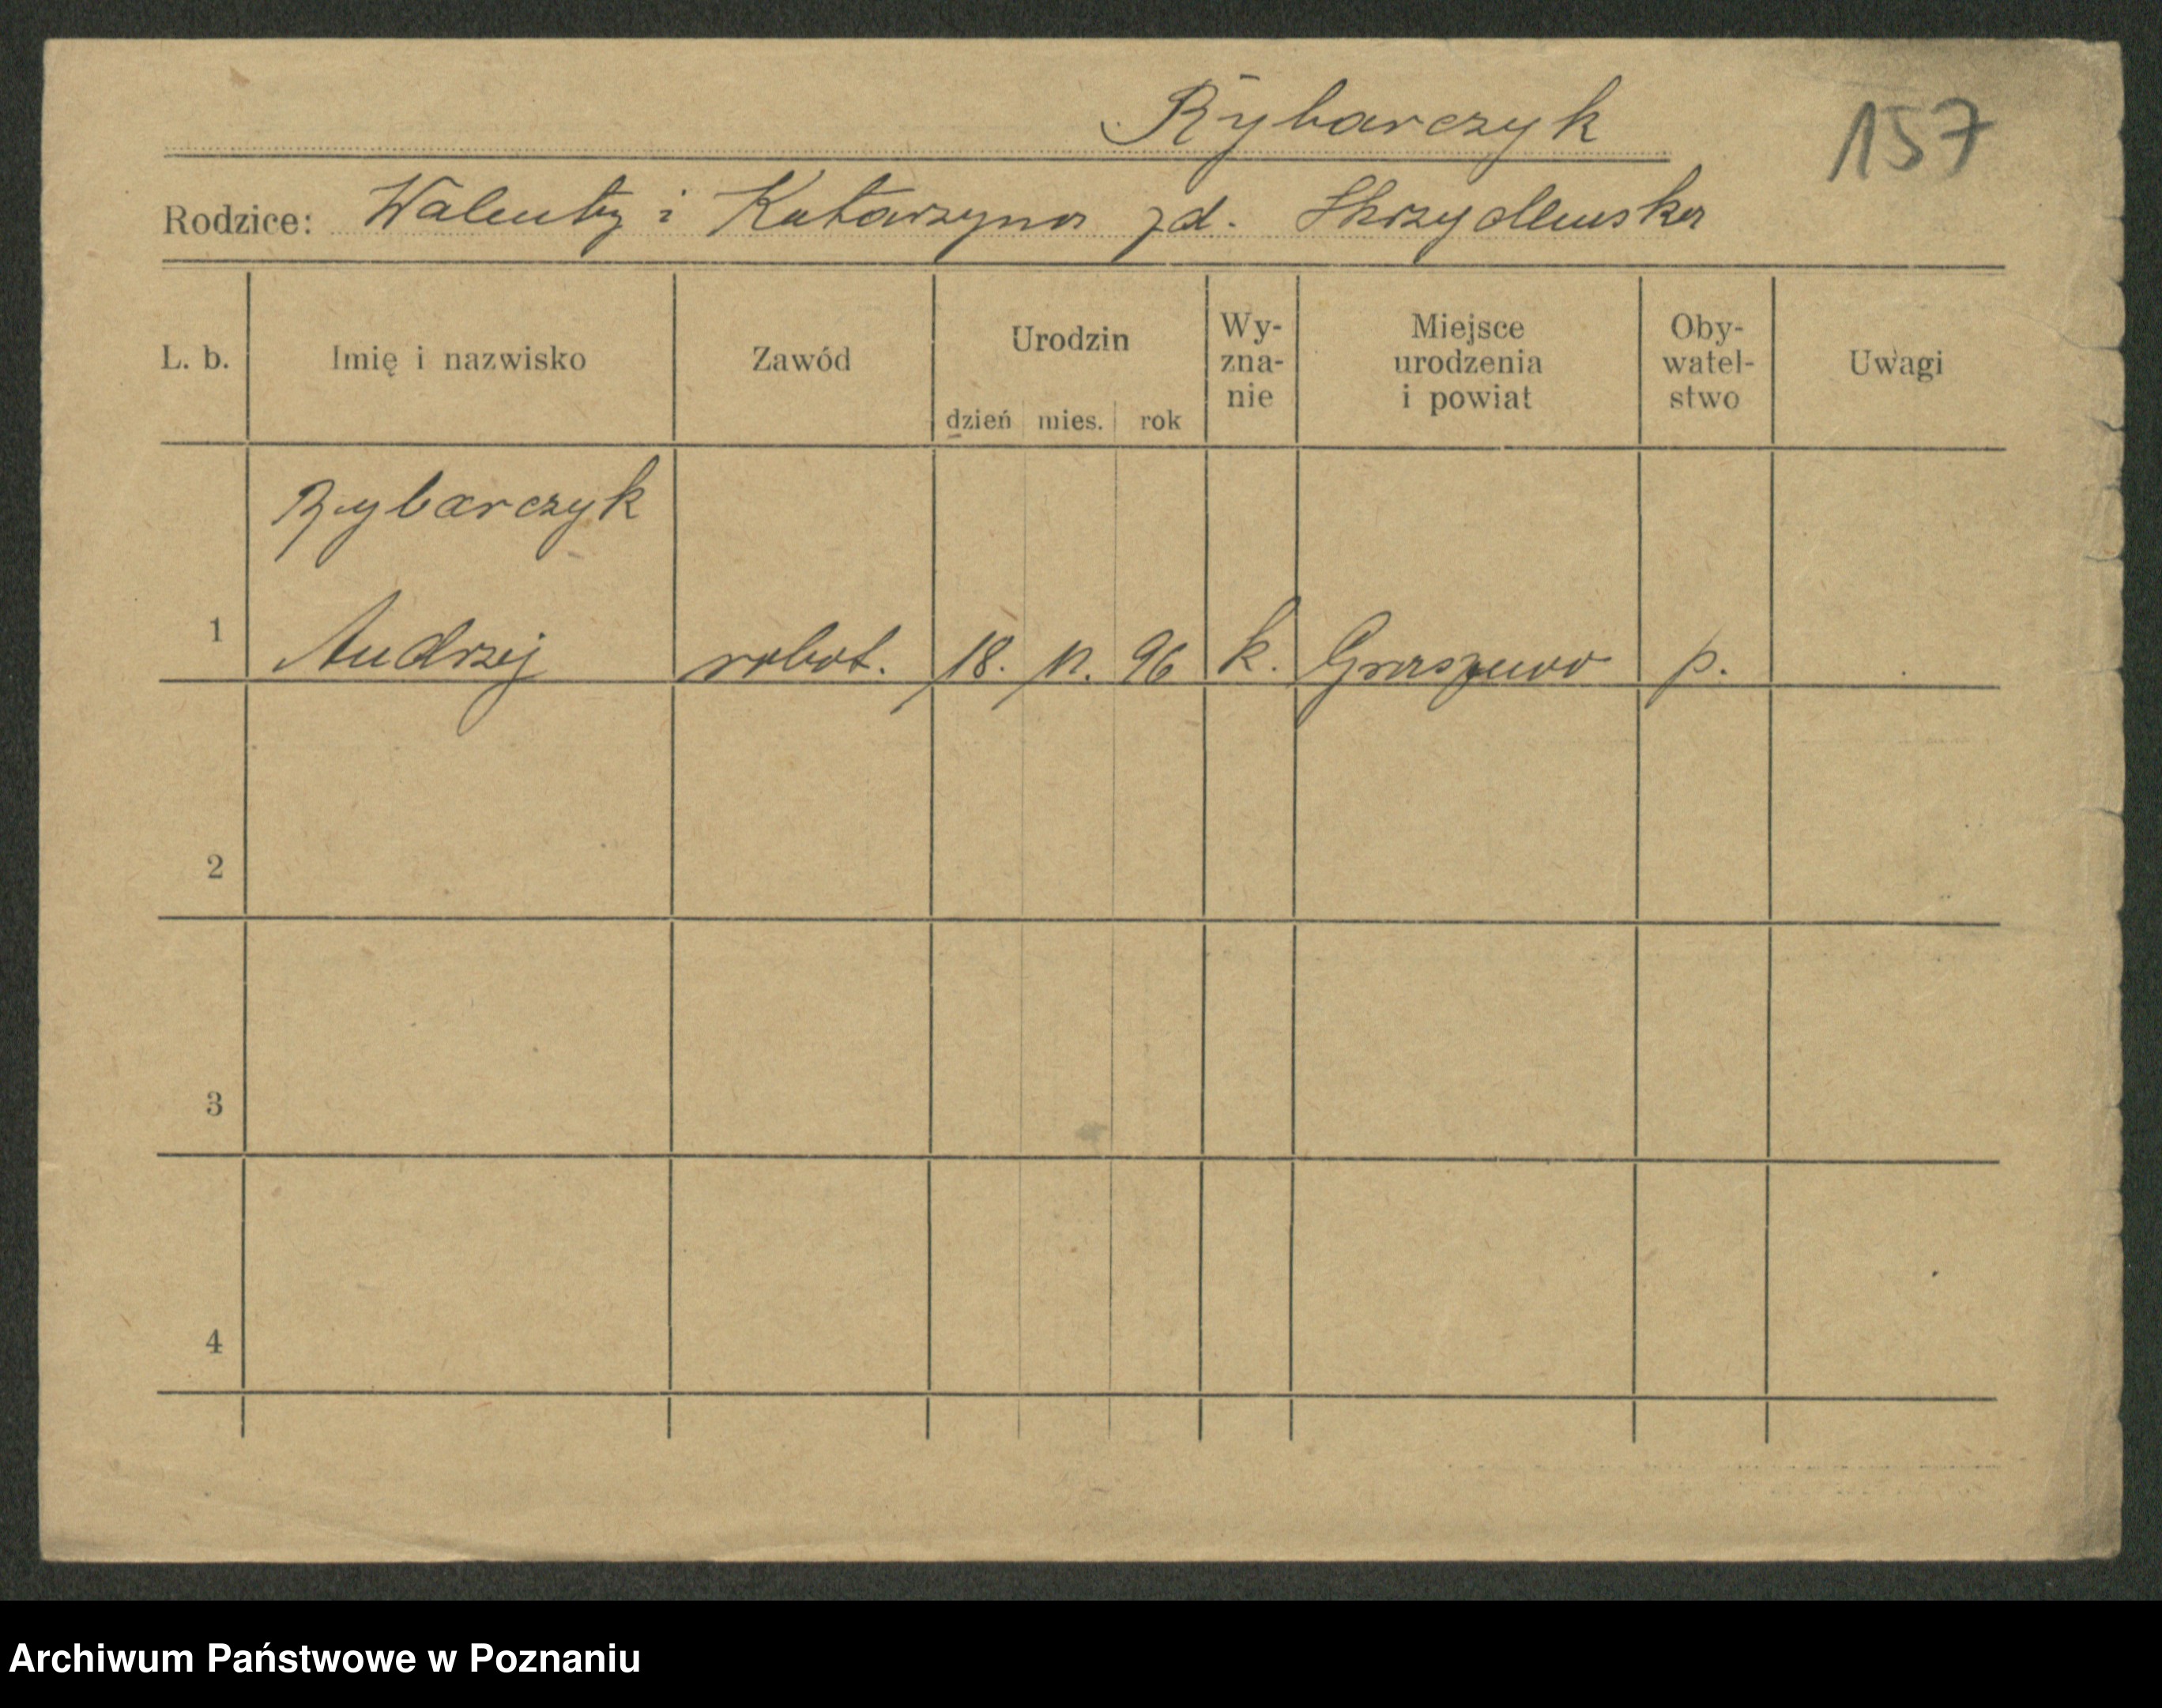 Rybarczyk
157
Rodzice: Walenty i Katarzyna zd. Skrzydlewska
L. b.
Imię i nazwisko
Zawód
Urodzin
dzień mies. rok
Wy-
zna-
nie
Miejsce
urodzenia
i powiat
Oby-
watel-
stwo
Uwagi
Rybarczyk
1 Andrzej robot. 18. 11. 96 k. p.
2
3
4
Archiwum Państwowe w Poznaniu